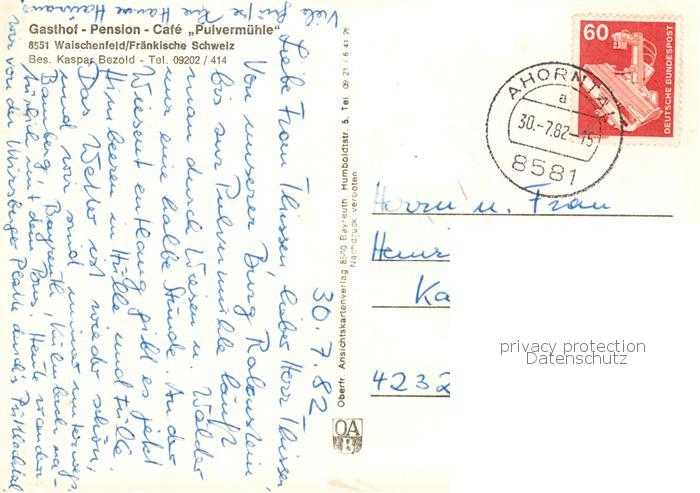 Gasthof - Pension - Café „Pulvermühle"
8551 Waischenfeld/Fränkische Schweiz
Bes. Kaspar Bezold - Tel. 09202 / 414
30.7.82
Liebe Frau Thissen, lieber Herr Thissen,
Von unserer Burg Rabenstein
bis zur Pulvermühle läuft
man durch Wiesen u. Wälder
nur eine halbe Stunde. An der
Wiesent entlang gibt es jetzt
Himbeeren in Hülle und Fülle.
Das Wetter ist wieder schön,
und wir sind immer unterwegs.
Bamberg, Bayreuth, Kulmbach na-
türlich mit dem Bus. Heute wander
wir von der durch's
Viele Grüße Hanne
Oberfr. Ansichtskartenverlag 8580 Bayreuth, Humboldtstr. 5, Tel. 09 21 /
Nachdruck verboten
OA
B
60
DEUTSCHE BUNDESPOST
AHORNTAL
a
30.-7.82-15
8581
Herrn u. Frau
Heinr
Ka
4232
privacy protection
Datenschutz